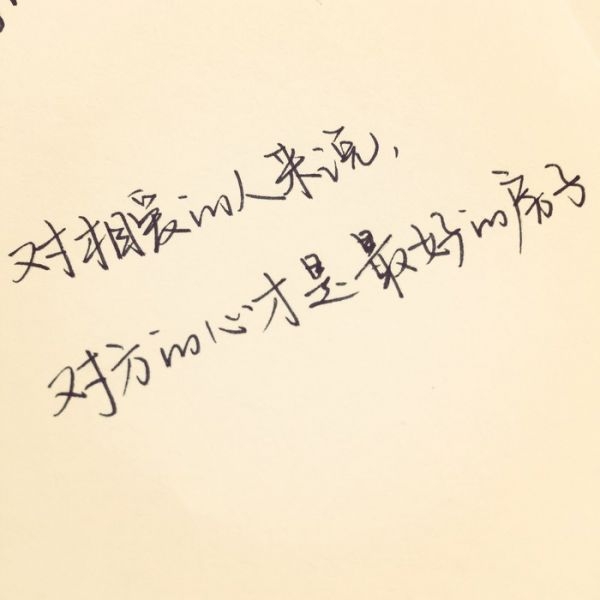 对相爱的人来说,
对方的心才是最好的房子